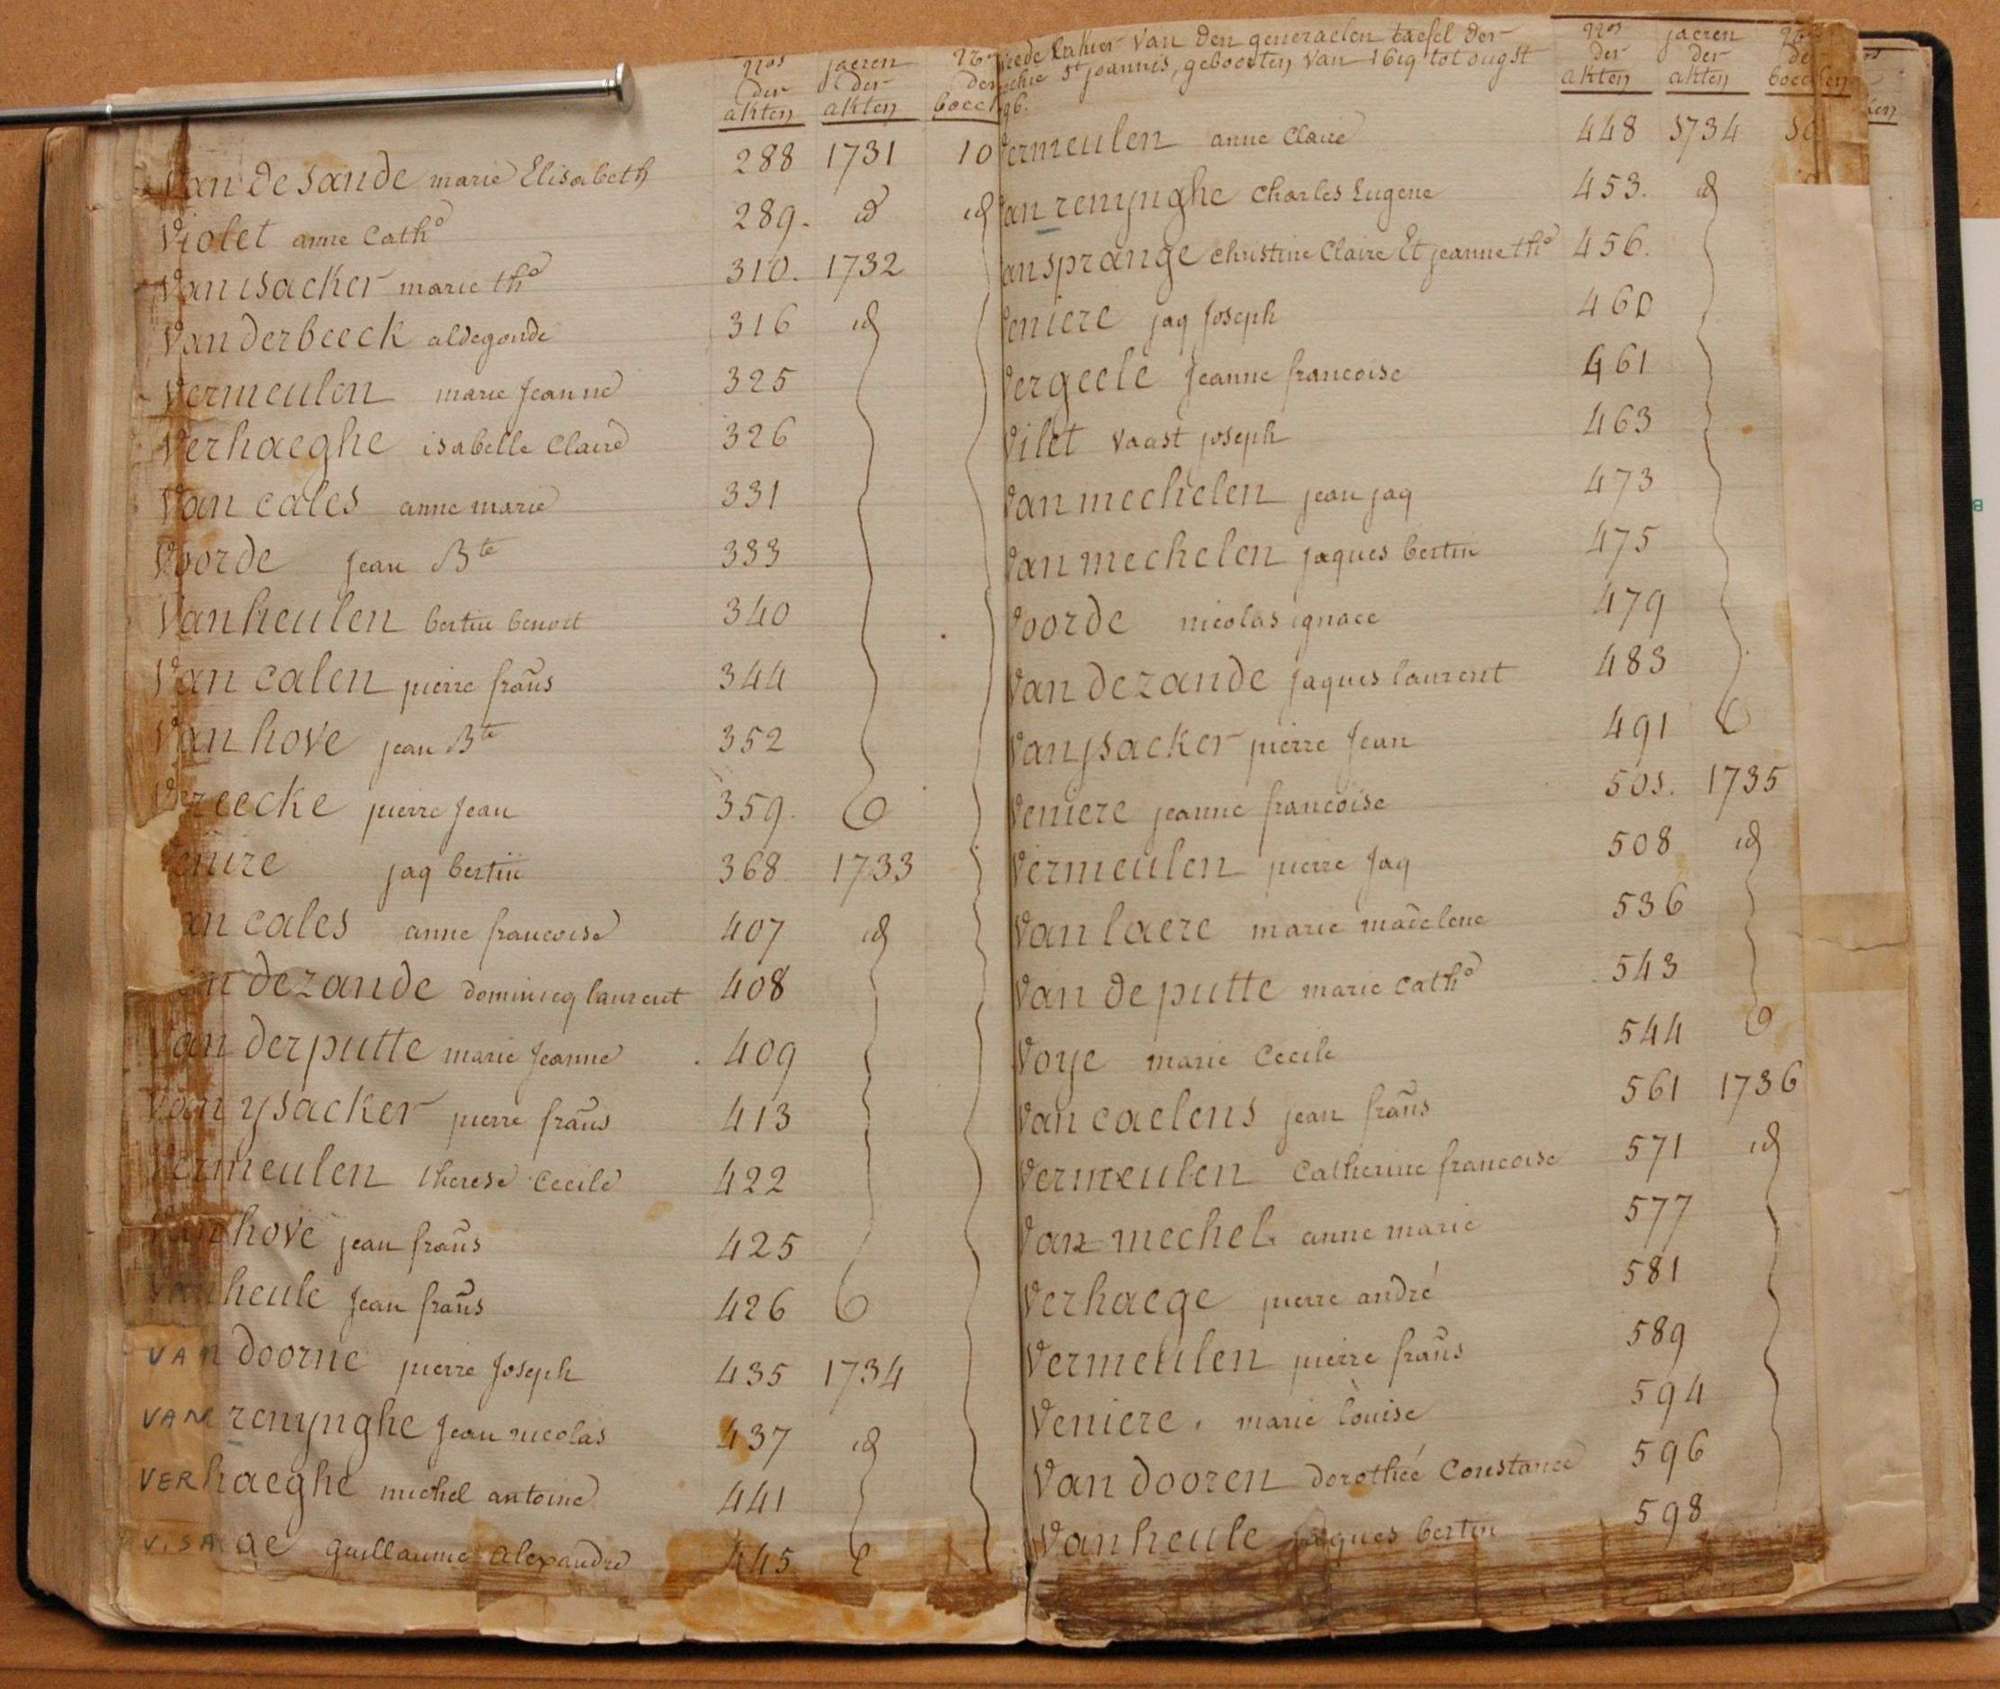 nos der akten jaeren der akten
Van de sande marie Elisabeth 288 1731 10
Violet anne Cathe 289. id id
Van isacker marie the 310. 1732
Van derbeeck aldegonde 316 id
Vermeulen marie Jeanne 325
Verhaeghe isabelle Claire 326
Van cales anne marie 331
Voorde Jean Bte 333
Vanheulen bertin benoit 340
Van calen pierre frans 344
Van hove jean Bte 352
Vereecke pierre Jean 359.
Veniere jaq bertin 368 1733
Van cales anne francoise 407 id
Van dezande dominicq laurent 408
Van derputte marie Jeanne 409
Van ysacker pierre frans 413
Vermeulen therese Cecile 422
Van hove jean frans 425
Van heule Jean frans 426
VAN doorne pierre Joseph 435 1734
VAN renynghe Jean nicolas 437 id
VERhaeghe michel antoine 441
VISAge guillaume alexandre 445
cahier van den generaelen taefel der
st joannis, geboorten van 1619 tot ougst
96.
nos der akten jaeren der akten boecken
Vermeulen anne Claire 448 1734 10
Van renynghe Charles Eugene 453. id
Van sprange Christine Claire Et jeanne the 456.
Veniere jaq Joseph 460
Vergeele Jeanne francoise 461
Vilet Vaast joseph 463
Van mechelen jean jaq 473
Van mechelen jaques bertin 475
Voorde nicolas ignace 479
Van dezande jaques laurent 483
Van ysacker pierre Jean 491
Veniere jeanne francoise 505. 1735
Vermeulen pierre Jaq 508 id
Van laere marie madelene 536
Van de putte marie Cathe 543
Voye marie Cecile 544
Van caelens jean frans 561 1736
Vermeulen Catherine francoise 571 id
Van mechel. anne marie 577
Verhaege pierre andré 581
Vermeulen pierre frans 589
Veniere. marie louise 594
Van dooren dorothée Constance 596
Vanheule jaques bertin 598